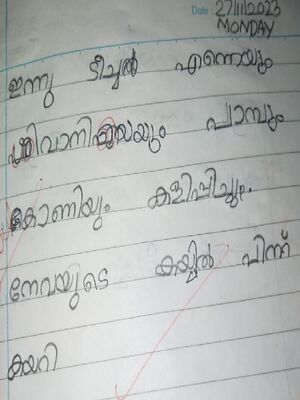 Date: 27/11/2023
MONDAY
ഇന്നു ടീച്ചർ എന്നെയും
ശിവാനിയെയും പാമ്പും
കോണിയും കളിപ്പിച്ചു.
നേവയുടെ കയ്യിൽ പിന്ന്
കയറി